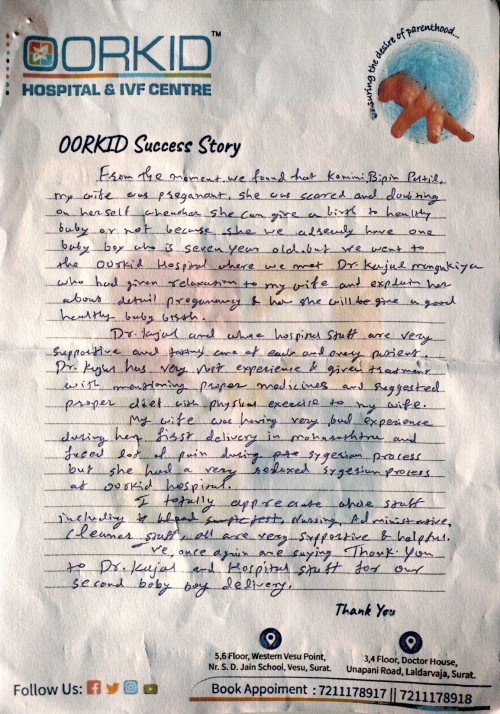 OORKID™
HOSPITAL & IVF CENTRE
ensuring the desire of parenthood...
OORKID Success Story
From the moment, we found that Kamini Bipin Patil,
my wife was preganant, she was scared and doubting
on herself whenther she can give a birth to healthy
baby or not because she we already have one
baby boy who is seven year old. but we went to
the OOrkid Hospital where we met Dr. Kajal mangukiya
who had given relaxation to my wife and explain her
about detail pregannancy & how she will be give a good
healthy baby birth.
Dr. Kajal and whole hospital staff are very
supportive and taking care of each and every patient.
Dr. Kajal has very vast experience & given treatment
with mentioning proper medicines and suggested
proper diet with physical exercise to my wife.
My wife was having very bad experience
during her first delivery in maharashtra and
faced lot of pain during sygesian process
but she had a very relaxed sygesian process
at oorkid hospital.
I totally appreciate whole staff
including Nursing, Administrative,
Cleaner staff, all are very supportive & helpful.
We, once again are saying Thank You
to Dr. Kajal and Hospital staff for our
second baby boy delivery.
Thank You
5,6 Floor, Western Vesu Point,
Nr. S. D. Jain School, Vesu, Surat.
3,4 Floor, Doctor House,
Unapani Road, Laldarvaja, Surat.
Follow Us:
Book Appoiment : 7211178917 || 7211178918